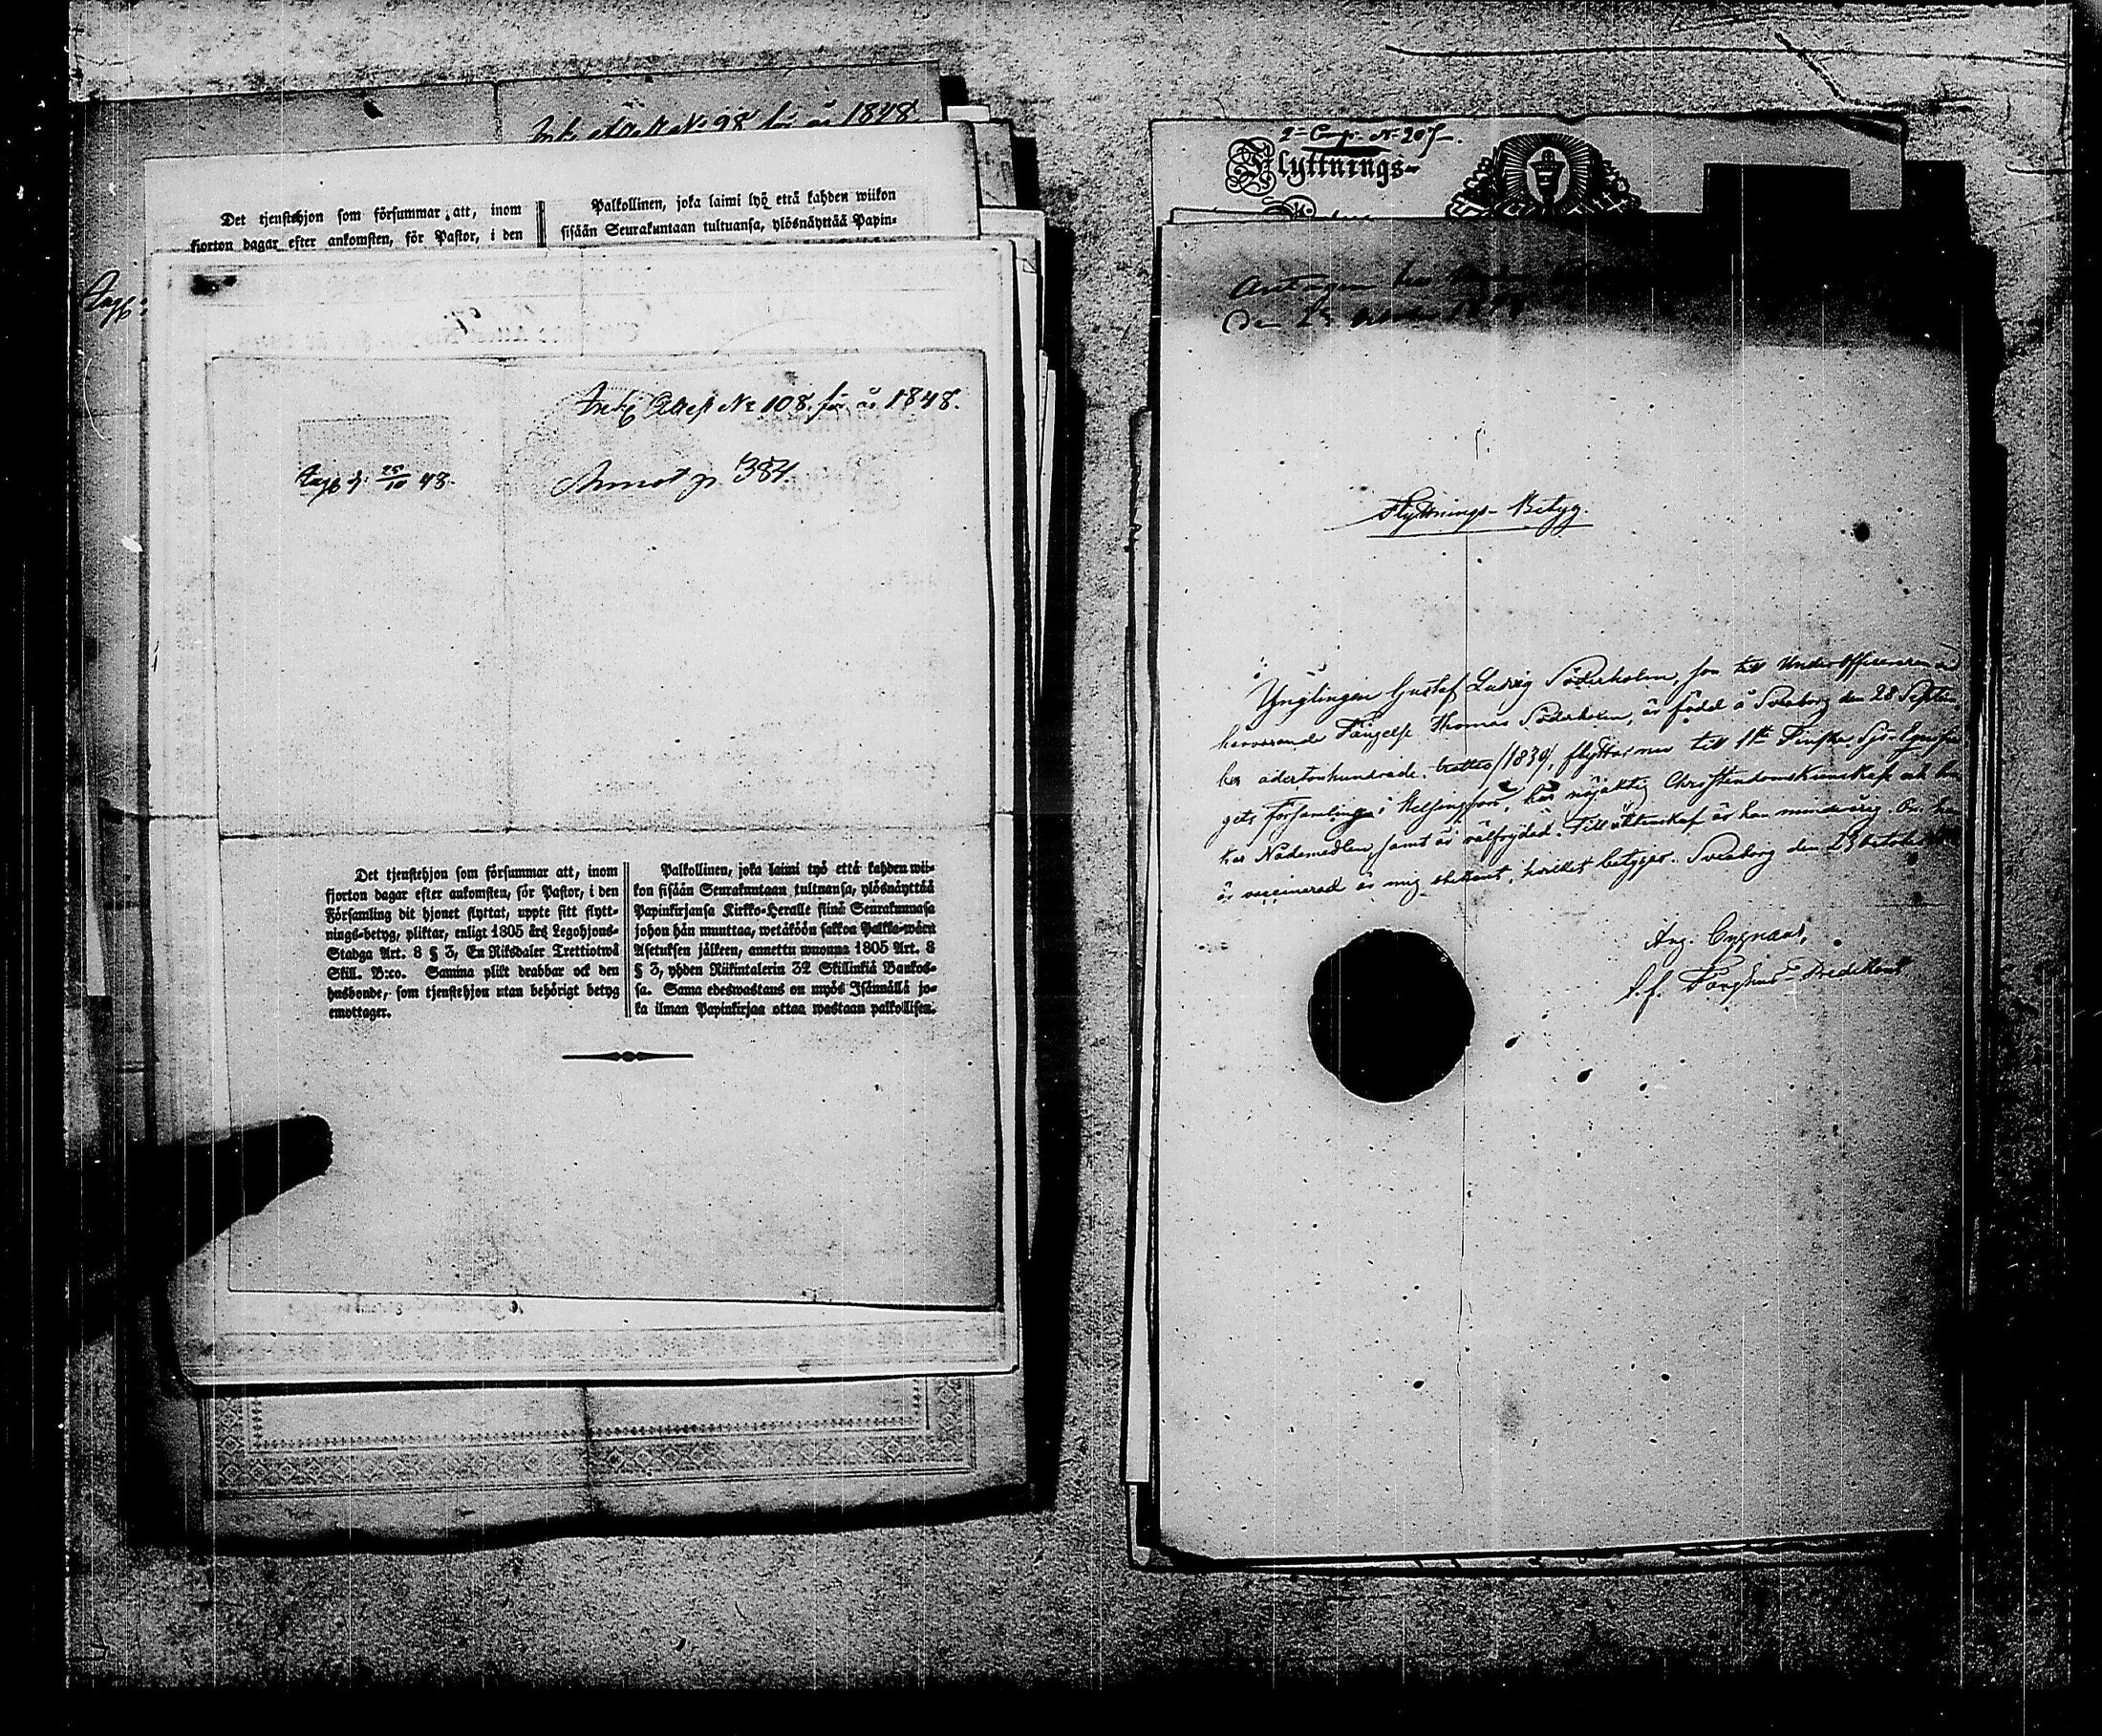 Ink. Attest No 98 för år 1848
Det tjenstehjon som försummar att, inom
fjorton dagar efter ankomsten, för Pastor, i den
Palkollinen, joka laimi lyö että kahden wiikon
sisään Seurakuntaan tultuansa, ylösnäyttää Papin-
Ink. Attest No 108. för år 1848.
25/10 48.
Annot p. 384.
Det tjenstehjon som försummar att, inom
fjorton dagar efter ankomsten, för Pastor, i den
Församling dit hjonet flyttat, uppte sitt flytt-
nings-betyg, pliktar, enligt 1805 års Legohjons-
Stadga Art. 8 § 3, En Riksdaler Trettiotwå
Skill. B:co. Samma plikt drabbar ock den
husbonde, som tjenstehjon utan behörigt betyg
emottager.
Palkollinen, joka laimi lyö että kahden wii-
kon sisään Seurakuntaan tultuansa, ylösnäyttää
Papinkirjansa Kirkko-Heralle siinä Seurakunnasa
johon hän muuttaa, wetäköön sakkoa Palkka-wäen
Asetuksen jälkeen, annettu wuonna 1805 Art. 8
§ 3, yhden Riikintalerin 32 Skillinkiä Bankos-
sa. Sama edeswastaus on myös Isännällä jo-
ka ilman Papinkirjaa ottaa wastaan palkollisen.
2=Comp. No 207.
Flyttnings-
Antagen
den 23
Flyttnings-Betyg.
Ynglingen Gustaf Ludvig Söderholm, son till Underofficeraren vid
härvarande Fängelse Thomas Söderholm, är född å Sveaborg den 28 Septem-
ber adertonhundrade trettio /1830/, flyttar nu till 1sta Finska Sjö-Equipa-
gets församling i Helsingfors, har nöjaktig Christendomskunskap och
Nådemedlen, samt är välfrejdad. Till äktenskap är han minderårig. Om han
är vaccinerad är mig obekant, hvilket betygar. Sveaborg den 23 October
Aug. Cygnaeus,
t.f. Predikant